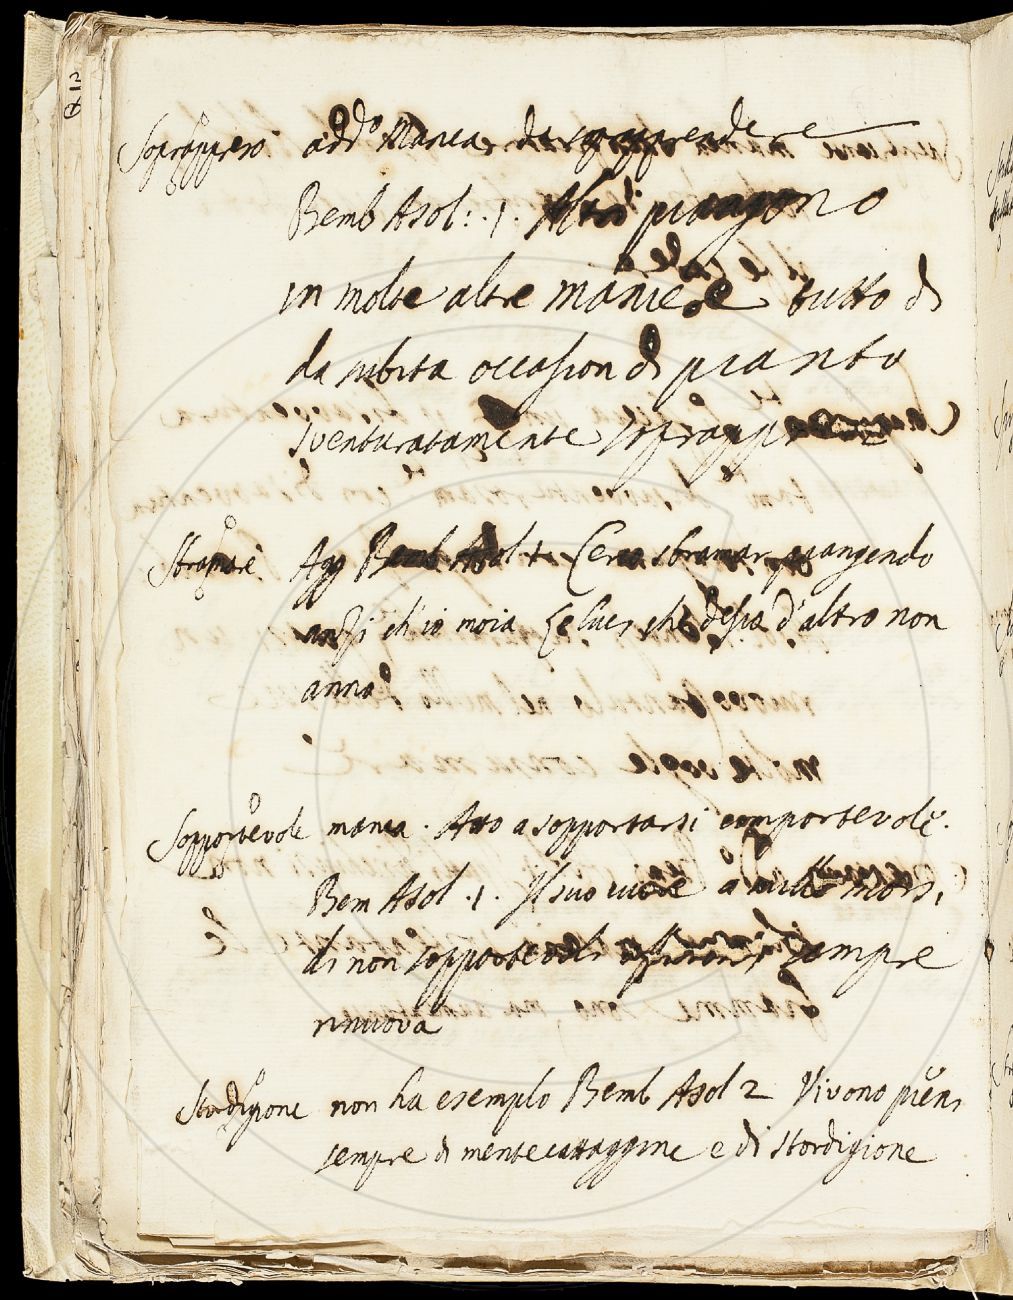 Soprappreso add.° Manca, da soprapprendere
Bemb Asol: .1. Altri piangono
in molte altre maniere tutto dì
da subita occasion di pianto
sventuratamente soprappresi
Stramare Agg Bemb Asol 1 Cerco stramar piangendo
anzi ch'io moia che desia d'altro non
anno
Sopportevole manca . Atto a sopportarsi comportevole.
Bem Asol .1. Il suo cuore a mille morsi
di non sopportevoli sempre
rinnuova
Stordigione non ha esemplo Bemb Asol 2 Vivono pien
sempre di mentecattaggine e di stordigione